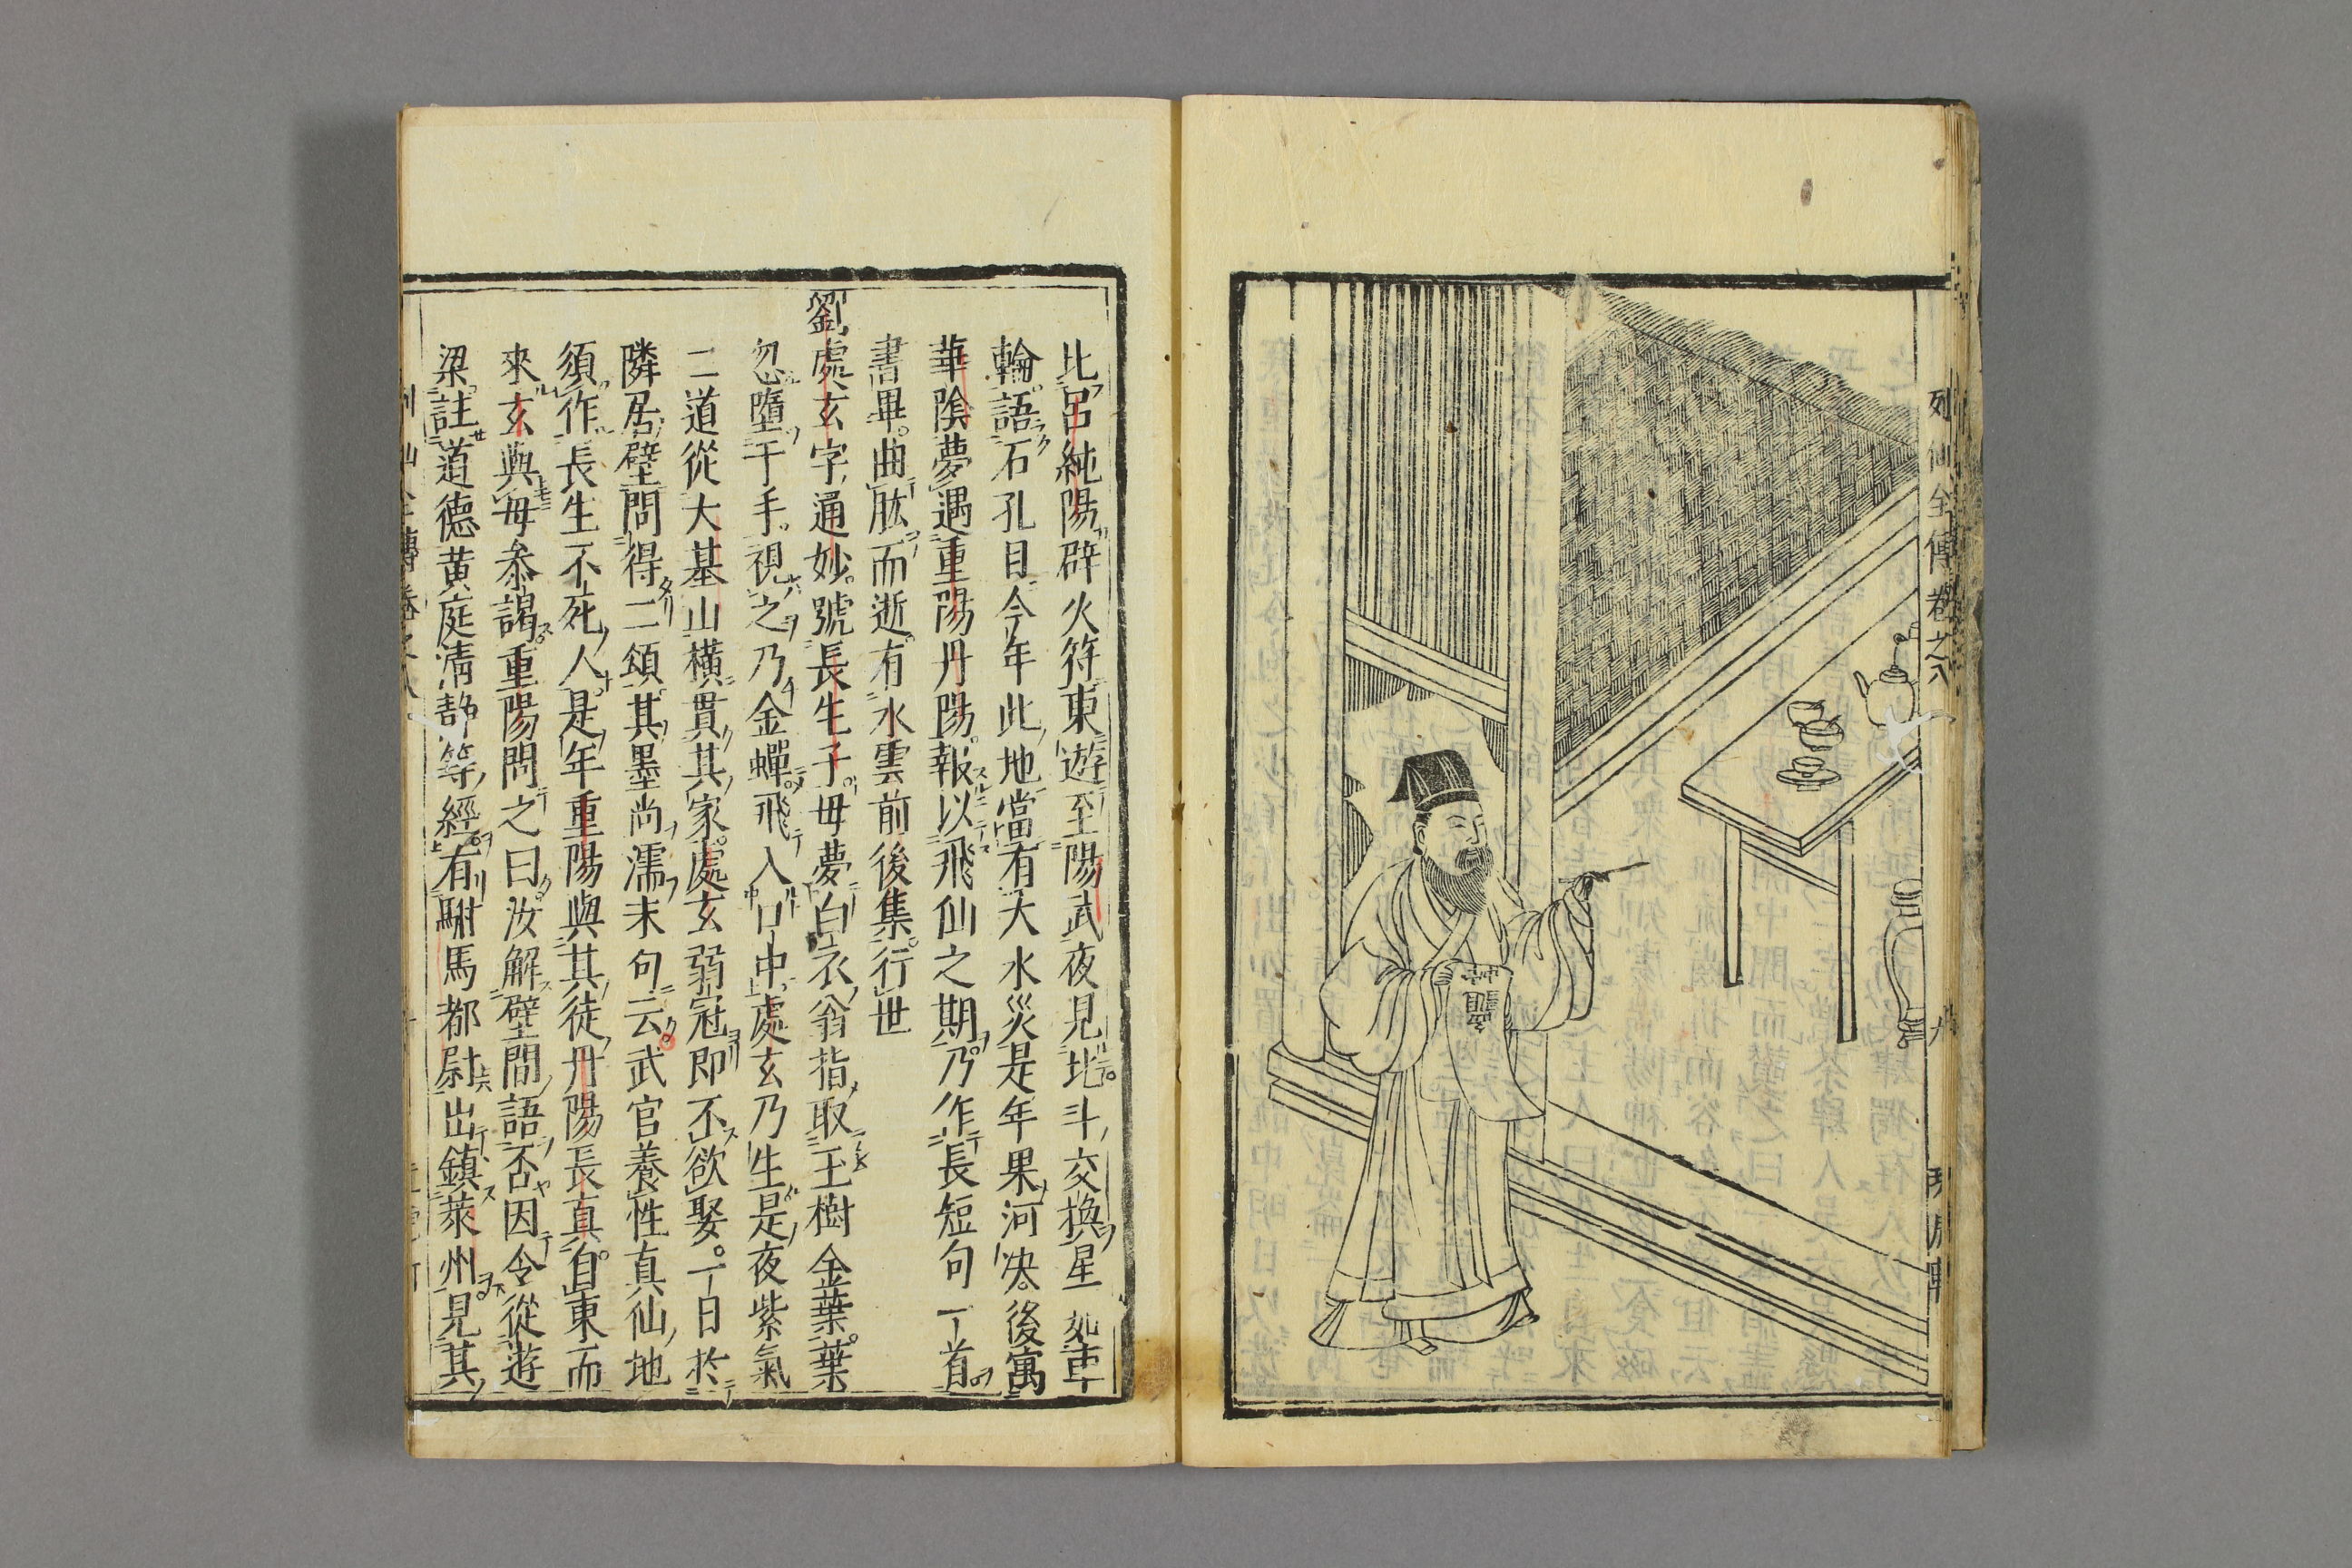 列仙全傳卷之八
九
比呂純陽辟火符東遊至陽武夜見北斗交換星如車
輪語石孔目今年此地當有大水災是年果河决後寓
華陰夢遇重陽丹陽報以飛仙之期乃作長短句一首
書畢曲肱而逝有水雲前後集行世
劉處玄字通妙號長生子母夢白衣翁指取玉樹金葉葉
忽墮于手視之乃金蟬飛入口中處玄乃生是夜紫氣
二道從大基山橫貫其家處玄弱冠即不欲娶一日於
隣居壁間得二頌其墨尚濡末句云武官養性真仙地
須作長生不死人是年重陽與其徒丹陽長真自東而
來玄與母叅謁重陽問之曰汝解壁間語否因令從遊
梁註道德黃庭清靜等經有駙馬都尉出鎮萊州見其
列仙全傳卷之八